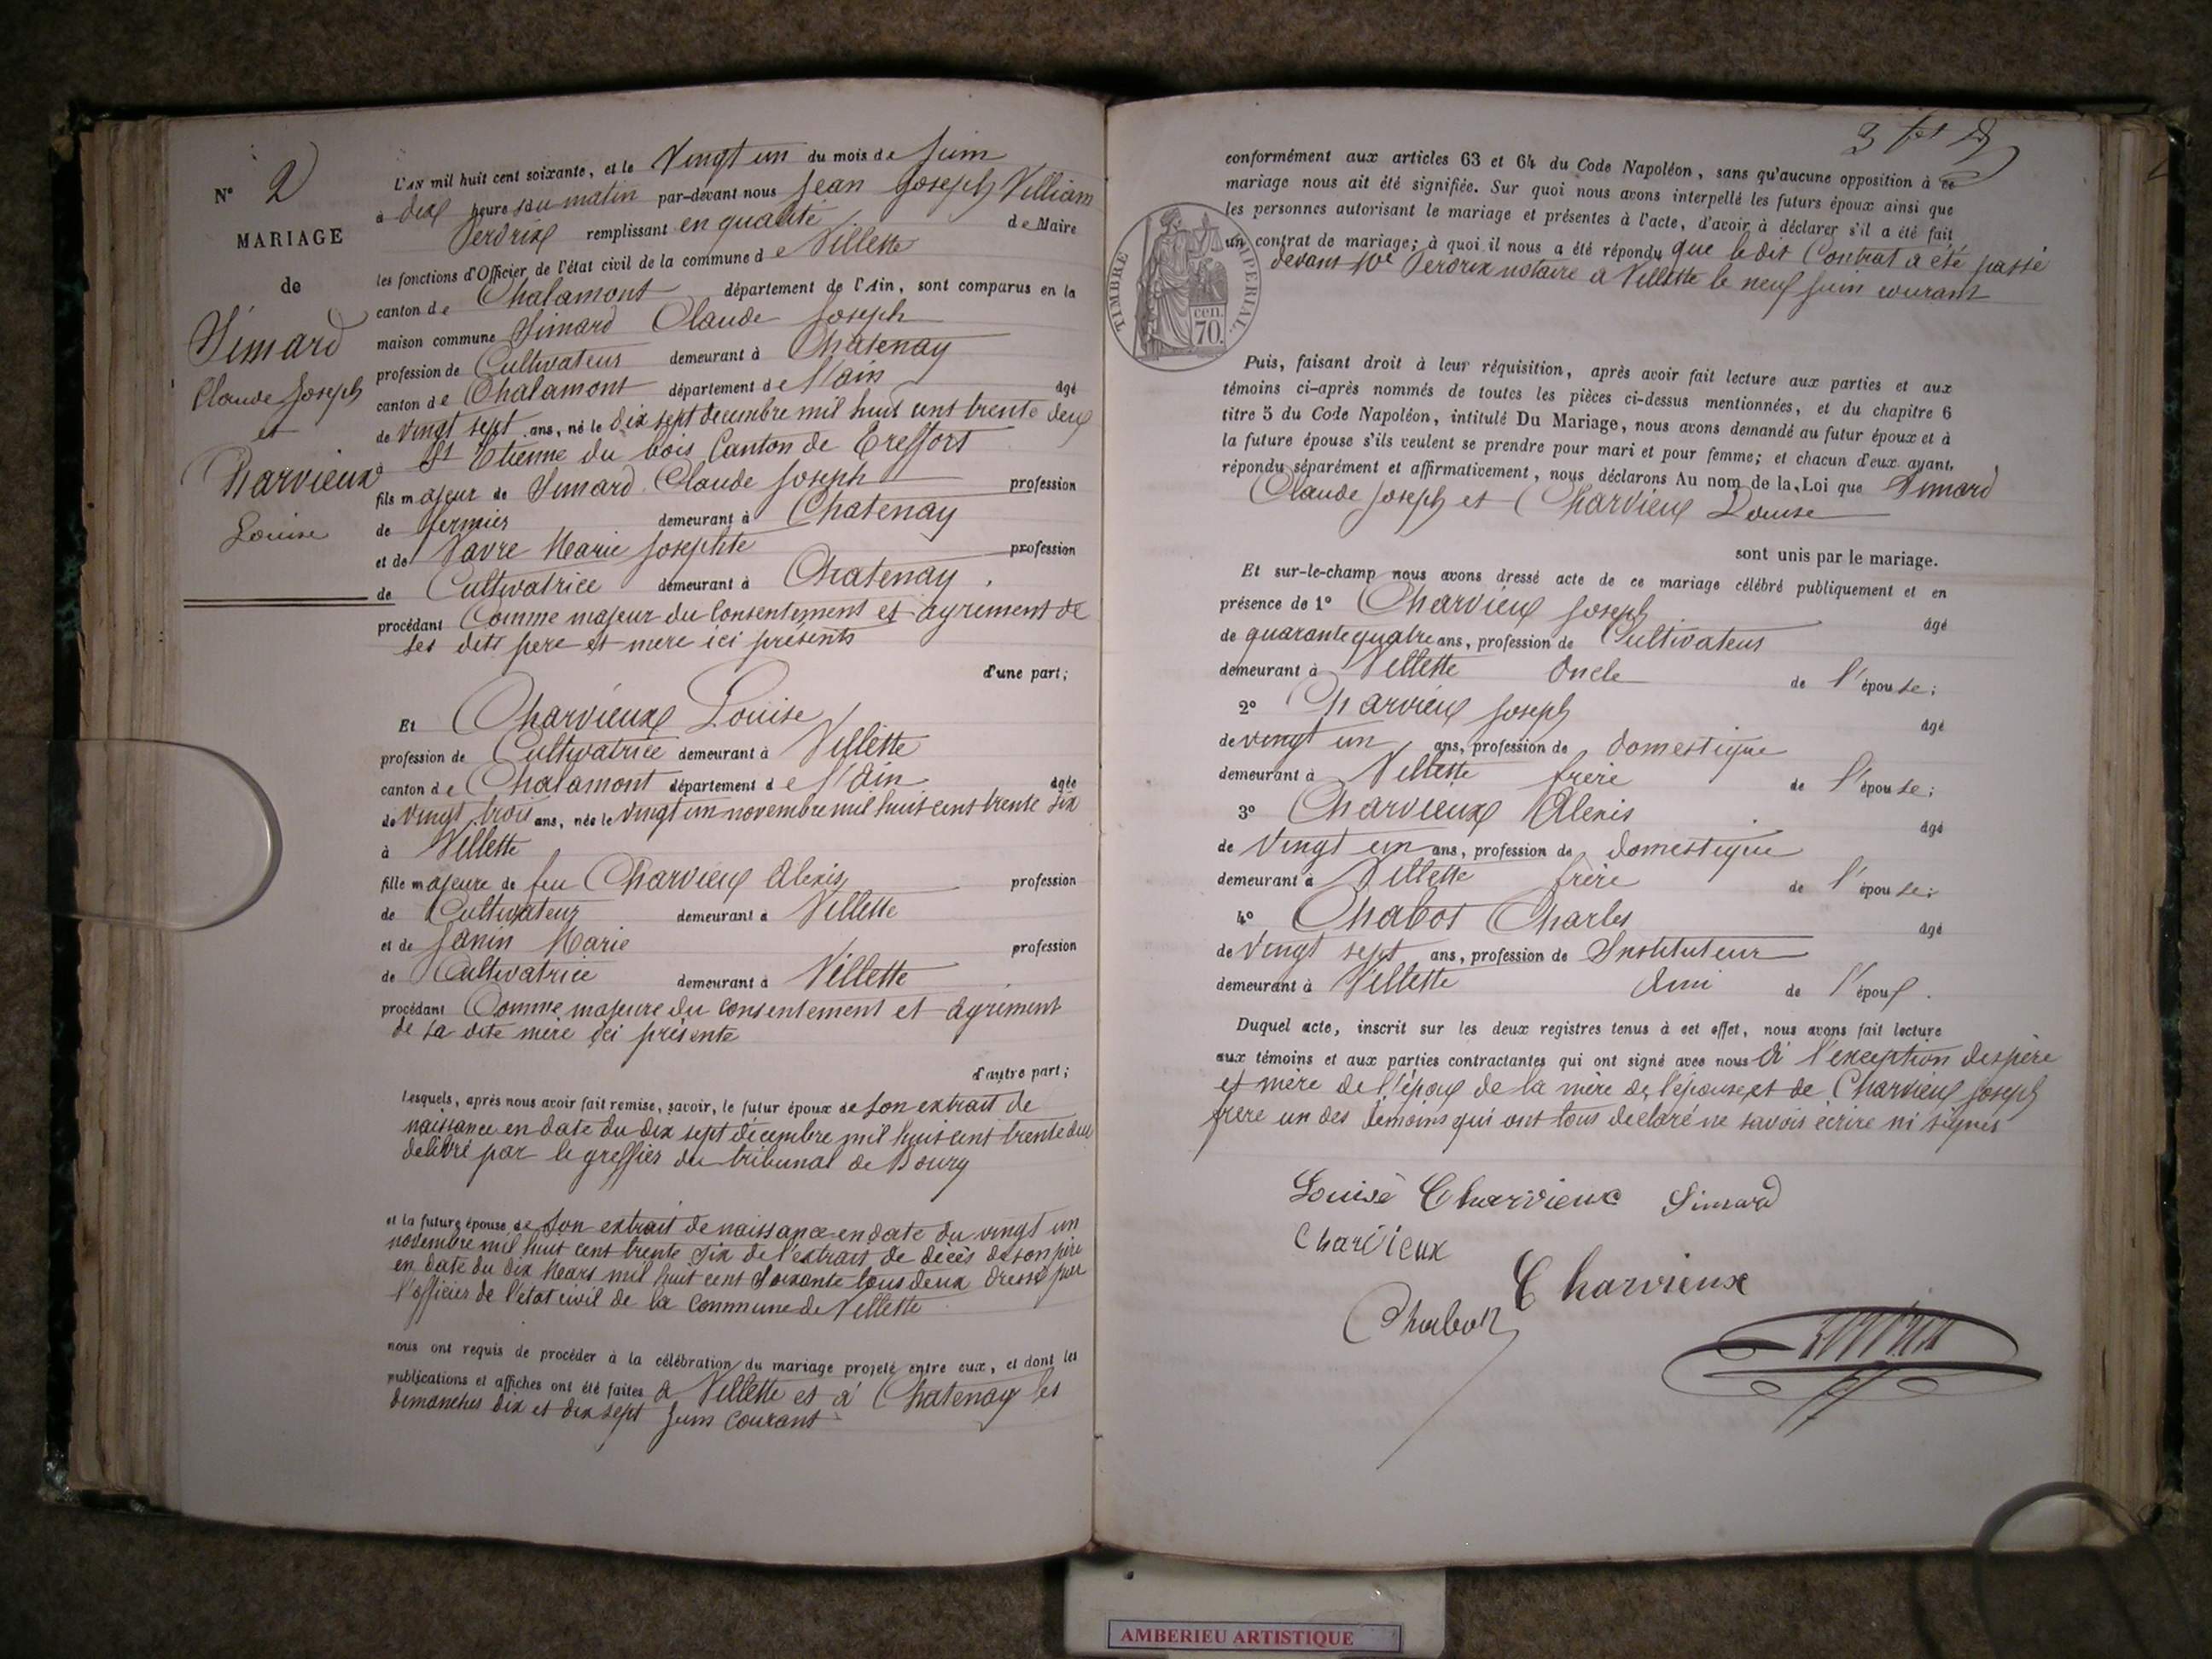 N° 2
MARIAGE
de
Simard
Claude Joseph
et
Charvieux
Louise
L'AN mil huit cent soixante, et le Vingt un du mois de Juin
à dix heure s du matin par-devant nous Jean Joseph Villiam
Perdrix remplissant en qualité de Maire
les fonctions d'Officier de l'état civil de la commune d e Villette
canton d e Chalamont département de l'Ain, sont comparus en la
maison commune Simard Claude Joseph
profession de Cultivateur demeurant à Chatenay
canton d e Chalamont département d e l'ain âgé
de vingt sept ans, né le dix sept decembre mil huit cent trente deux
à St Etienne du bois Canton de Treffort
fils majeur de Simard Claude Joseph profession
de fermier demeurant à Chatenay
et de Navre Marie Josephte profession
de Cultivatrice demeurant à Chatenay.
procédant Comme majeur du Consentement et agrément de
ses dits père et mere ici présents
d'une part;
Et Charvieux Louise
profession de Cultivatrice demeurant à Villette
canton d e Chalamont département d e l'ain âgée
de vingt trois ans, née le vingt un novembre mil huit cent trente six
à Villette
fille majeure de feu Charvieux Alexis profession
de Cultivateur demeurant à Villette
et de Janin Marie profession
de Cultivatrice demeurant à Villette
procédant Comme majeure du consentement et agrément
de sa dite mère ici présente
d'autre part;
Lesquels, après nous avoir fait remise, savoir, le futur époux de son extrait de
naissance en date du dix sept decembre mil huit cent trente deux
delivré par le greffier du tribunal de Bourg
et la future épouse de son extrait de naissance en date du vingt un
novembre mil huit cent trente six de l'extrait de décès de son père
en date du dix Mars mil huit cent Soixante tous deux dressé par
l'officier de l'état civil de la Commune de Villette
nous ont requis de procéder à la célébration du mariage projeté entre eux, et dont les
publications et affiches ont été faites à Villette et à Chatenay les
dimanches dix et dix sept Juin Courant
conformément aux articles 63 et 64 du Code Napoléon, sans qu'aucune opposition à ce
mariage nous ait été signifiée. Sur quoi nous avons interpellé les futurs époux ainsi que
les personnes autorisant le mariage et présentes à l'acte, d'avoir à déclarer s'il a été fait
un contrat de mariage; à quoi il nous a été répondu que le dit Contrat a été passé
devant Me Perdrix notaire à Villette le neuf Juin courant
TIMBRE IMPERIAL
cen.
70.
Puis, faisant droit à leur réquisition, après avoir fait lecture aux parties et aux
témoins ci-après nommés de toutes les pièces ci-dessus mentionnées, et du chapitre 6
titre 5 du Code Napoléon, intitulé Du Mariage, nous avons demandé au futur époux et à
la future épouse s'ils veulent se prendre pour mari et pour femme; et chacun d'eux ayant
répondu séparément et affirmativement, nous déclarons Au nom de la Loi que Simard
Claude Joseph et Charvieux Louise
sont unis par le mariage.
Et sur-le-champ nous avons dressé acte de ce mariage célébré publiquement et en
présence de 1° Charvieux Joseph âgé
de quarante quatre ans, profession de Cultivateur
demeurant à Villette Oncle de l'épouse;
2° Charvieux Joseph âgé
de vingt un ans, profession de domestique
demeurant à Villette frère de l'épouse;
3° Charvieux Alexis âgé
de Vingt un ans, profession de domestique
demeurant à Villette frère de l'épouse;
4° Chabot Charles âgé
de vingt sept ans, profession de Instituteur
demeurant à Villette Ami de l'époux.
Duquel acte, inscrit sur les deux registres tenus à cet effet, nous avons fait lecture
aux témoins et aux parties contractantes qui ont signé avec nous à l'exception des père
et mère de l'époux de la mère de l'épouse, et de Charvieux Joseph
frère un des témoins qui ont tous declaré ne savoir écrire ni signer
Louise Charvieux Simard
Charvieux
Charvieux
Chabot
AMBERIEU ARTISTIQUE